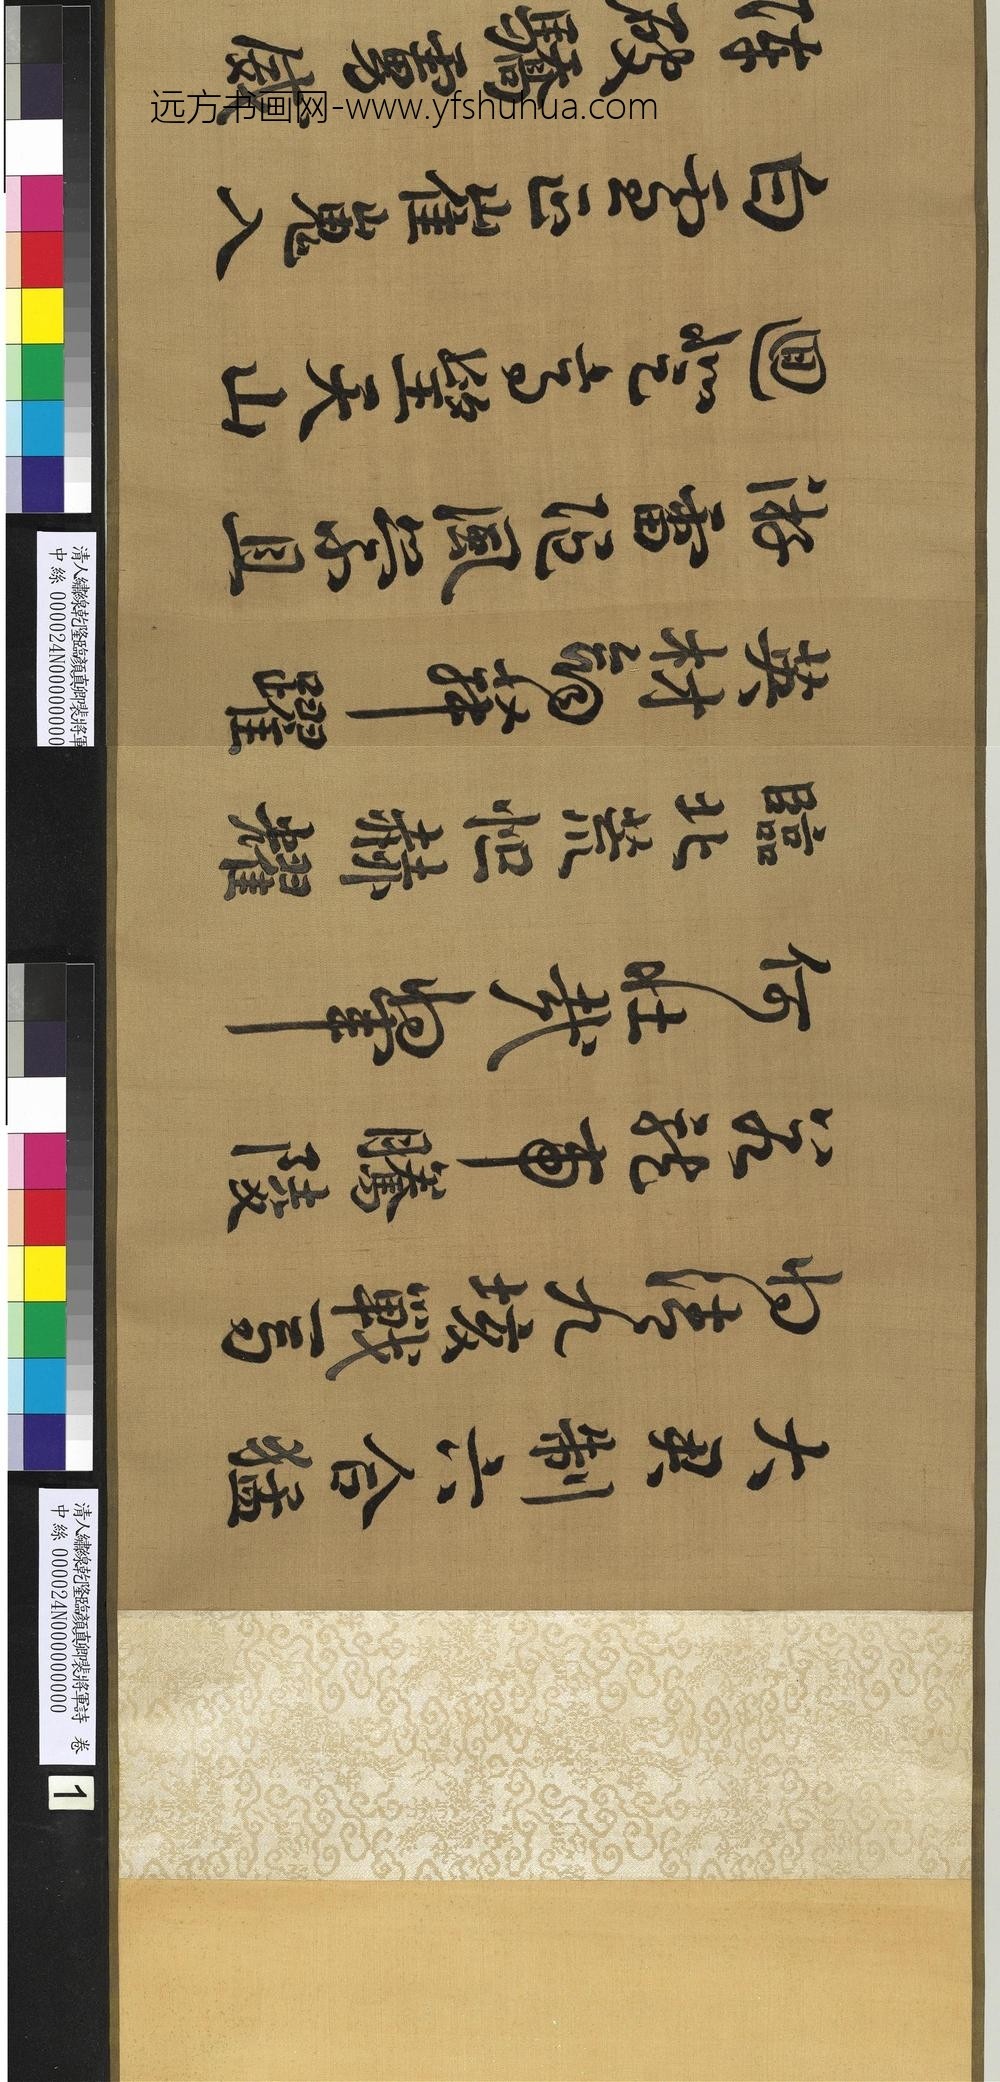 远方书画网-www.yfshuhua.com
大君制六合猛
將清九垓戰馬
若龍虎騰陵
何壯哉將軍
臨北荒恒赫耀
英材劍舞躍
游電隨風縈且
迴登高望天山
白雲正崔嵬入
陣破驕虜威
清人繡線乾隆臨顏真卿裴將軍
中絲 000024N000000000
清人繡線乾隆臨顏真卿裴將軍詩 卷
中絲 000024N000000000
1